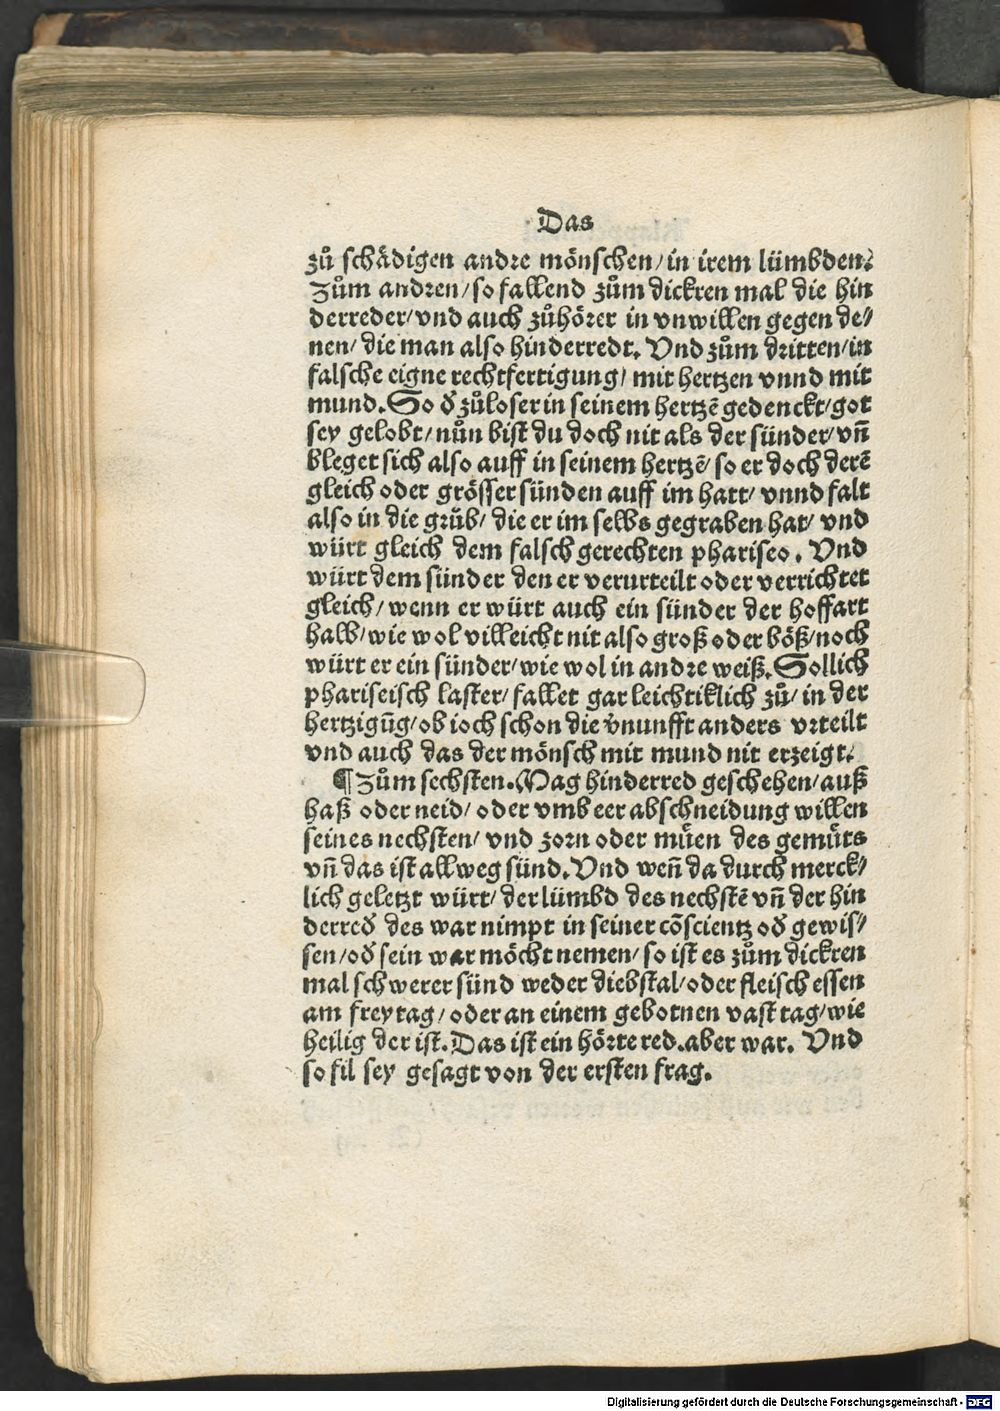 Das
zů schådigen andre mönschen/ in irem lümbden.
Zům andren/ so fallend zům dickren mal die hin
derreder/ vnd auch zůhörer in vnwillen gegen de/
nen/ die man also hinderredt. Vnd zům dritten/ in
falsche eigne rechtfertigung/ mit hertzen vnnd mit
mund. So đ zůloser in seinem hertzẽ gedenckt/ got
sey gelobt/ nůn bist du doch nit als der sünder/ vñ
bleget sich also auff in seinem hertzẽ/ so er doch derẽ
gleich oder grösser sünden auff im hatt/ vnnd falt
also in die grůb/ die er im selbs gegraben hat/ vnd
würt gleich dem falsch gerechten phariseo. Vnd
würt dem sünder den er verurteilt oder verrichtet
gleich/ wenn er würt auch ein sünder der hoffart
halb/ wie wol villeicht nit also groß oder böß/ noch
würt er ein sünder/ wie wol in andre weiß. Sollich
phariseisch laster/ fallet gar leichtiklich zů/ in der
hertzigũg/ ob ioch schon die v̈nunfft anders vrteilt
vnd auch das der mönsch mit mund nit erzeigt.
¶ Zům sechsten. Mag hinderred geschehen/ auß
haß oder neid/ oder vmb eer abschneidung willen
seines nechsten/ vnd zorn oder müen des gemüts
vñ das ist allweg sünd. Vnd weñ da durch merck/
lich geletzt würt/ der lümbd des nechstẽ vñ der hin
derred des war nimpt in seiner cõscientz ođ gewis/
sen/ ođ sein war möcht nemen/ so ist es zům dickren
mal schwerer sünd weder diebstal/ oder fleisch essen
am freytag/ oder an einem gebotnen vast tag/ wie
heilig der ist. Das ist ein hörte red. aber war. Vnd
so fil sey gesagt von der ersten frag.
Digitalisierung gefördert durch die Deutsche Forschungsgemeinschaft - DFG